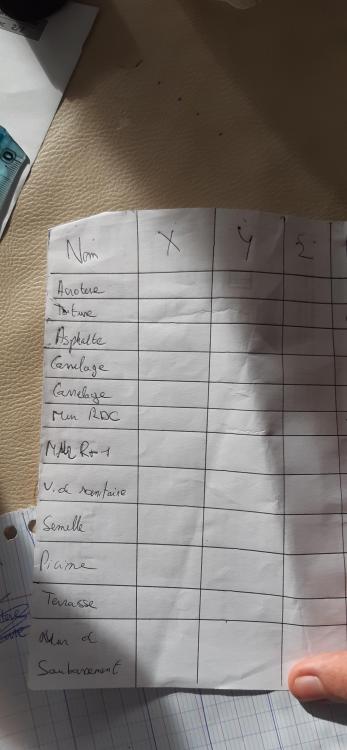 Nom X Y Z
Acrotere
Toiture
Asphalte
Carrelage
Carrelage
Mur RDC
MUR R+1
V. d sanitaire
Semelle
Piscine
Terrasse
Mur d
Soubassement